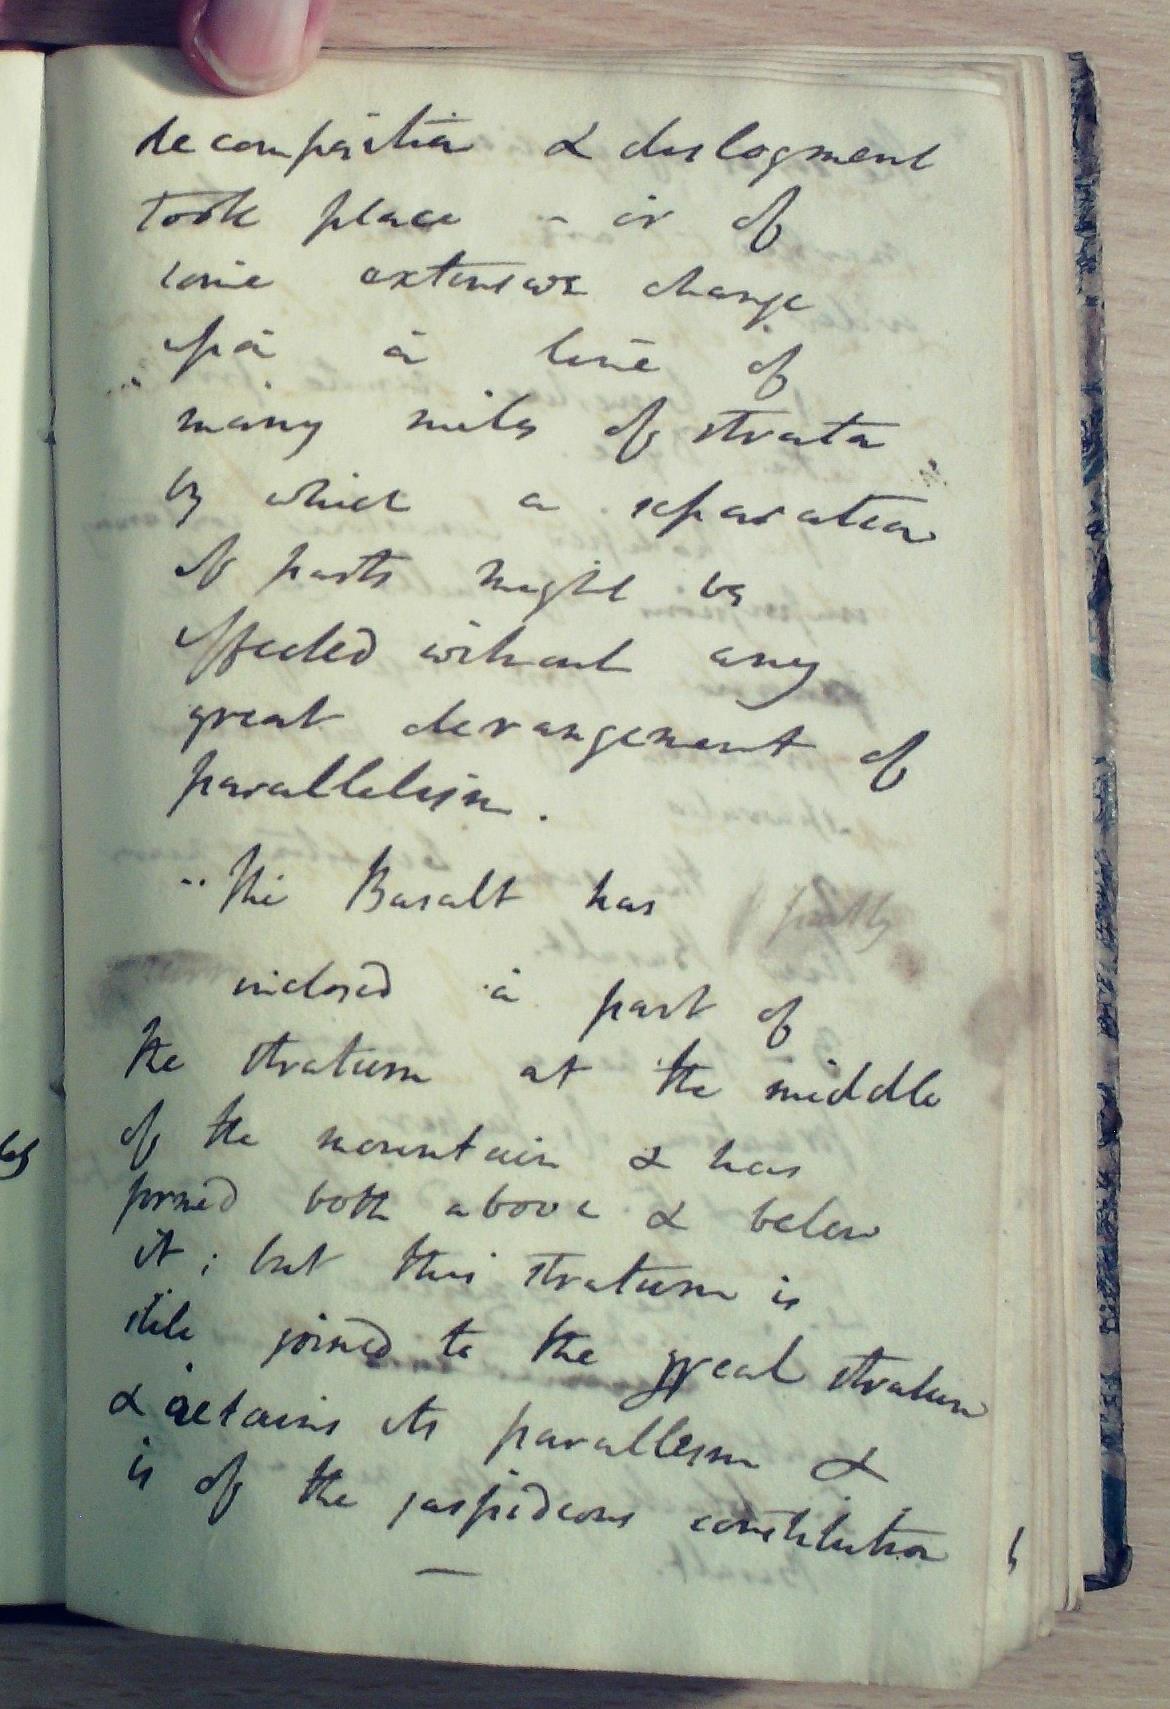 decomposition & dislogment
took place - or of
some extensive change
upon a line of
many miles of strata
by which a separation
of parts might be
effected without any
great derangement of
parallelism.
The Basalt has partly
inclosed a part of
the stratum at the middle
of the mountain & has
formed both above & below
it; but this stratum is
still joined to the great stratum
& retains its parallesm &
is of the jaspideous constitution